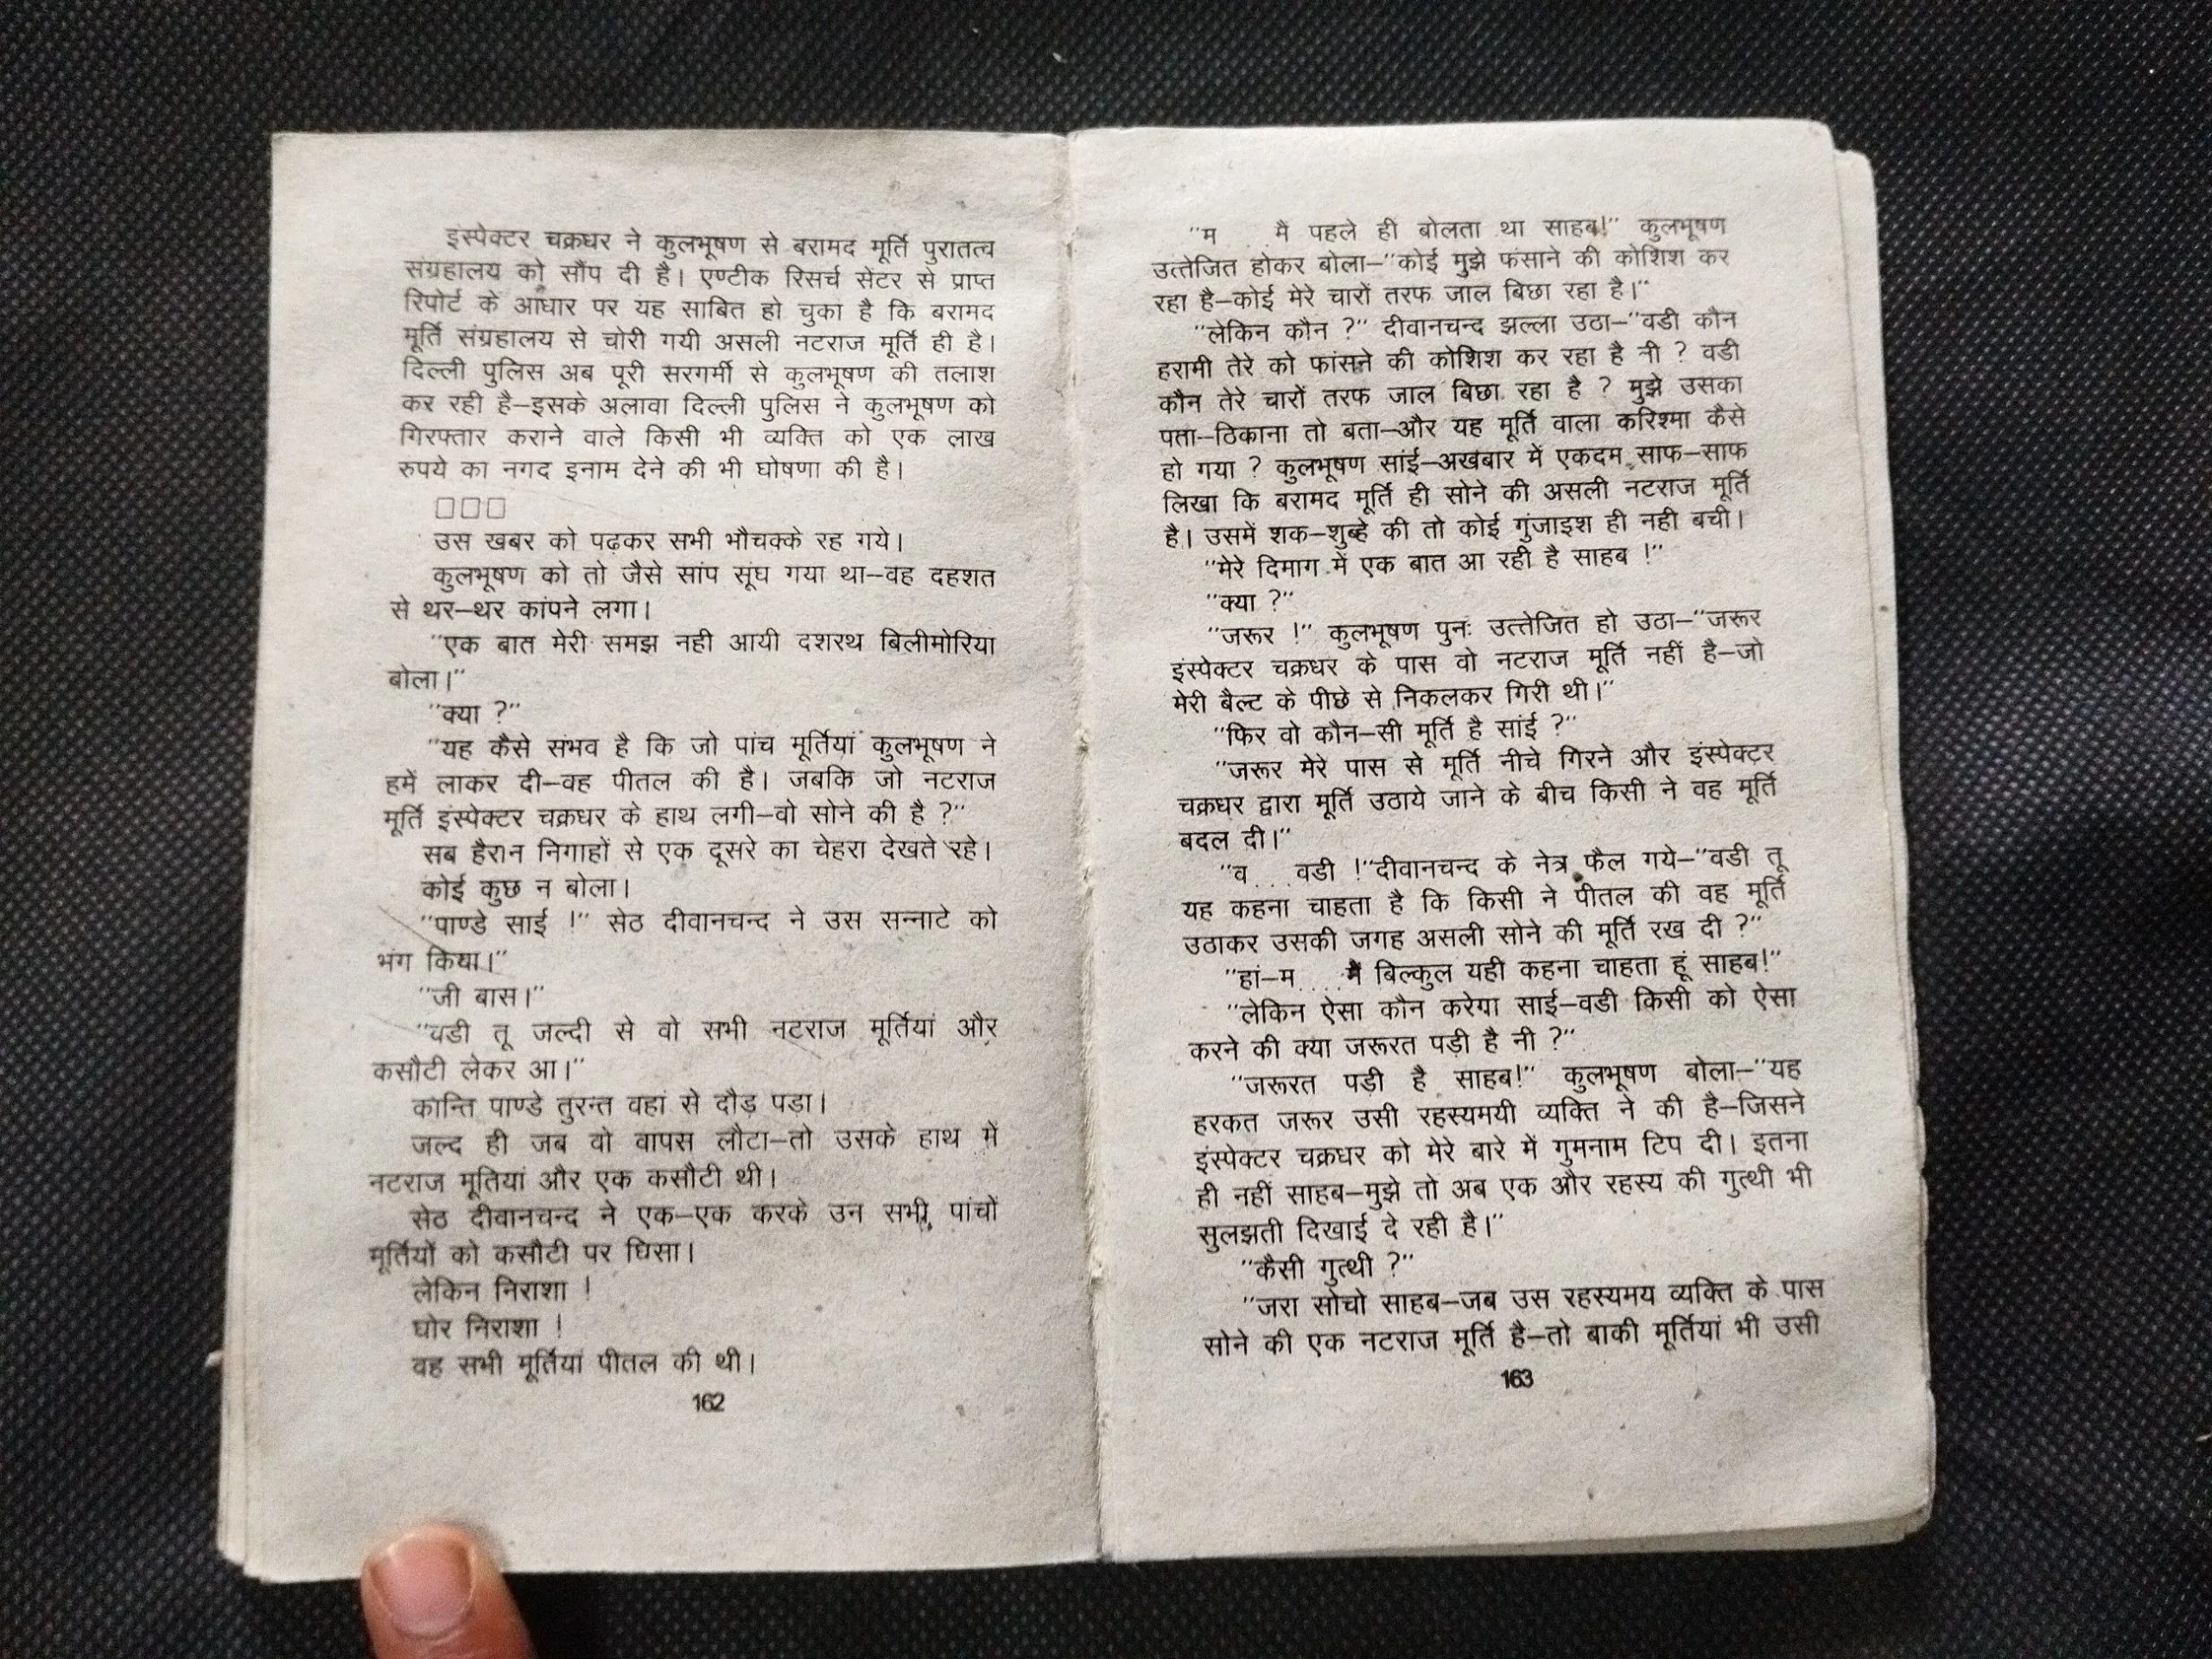 इंस्पेक्टर चक्रधर ने कुलभूषण से बरामद मूर्ति पुरातत्व
संग्रहालय को सौंप दी है। एण्टीक रिसर्च सेंटर से प्राप्त
रिपोर्ट के आधार पर यह साबित हो चुका है कि बरामद
मूर्ति संग्रहालय से चोरी गयी असली नटराज मूर्ति ही है।
दिल्ली पुलिस अब पूरी सरगर्मी से कुलभूषण की तलाश
कर रही है–इसके अलावा दिल्ली पुलिस ने कुलभूषण को
गिरफ्तार कराने वाले किसी भी व्यक्ति को एक लाख
रुपये का नगद इनाम देने की भी घोषणा की है।
□□□
उस खबर को पढ़कर सभी भौचक्के रह गये।
कुलभूषण को तो जैसे सांप सूंघ गया था–वह दहशत
से थर–थर कांपने लगा।
"एक बात मेरी समझ नही आयी दशरथ बिलीमोरिया
बोला।"
"क्या ?"
"यह कैसे संभव है कि जो पांच मूर्तियां कुलभूषण ने
हमें लाकर दी–वह पीतल की है। जबकि जो नटराज
मूर्ति इंस्पेक्टर चक्रधर के हाथ लगी–वो सोने की है ?"
सब हैरान निगाहों से एक दूसरे का चेहरा देखते रहे।
कोई कुछ न बोला।
"पाण्डे साई !" सेठ दीवानचन्द ने उस सन्नाटे को
भंग किया।"
"जी बास।"
"वडी तू जल्दी से वो सभी नटराज मूर्तियां और
कसौटी लेकर आ।"
कान्ति पाण्डे तुरन्त वहां से दौड़ पड़ा।
जल्द ही जब वो वापस लौटा–तो उसके हाथ में
नटराज मूतियां और एक कसौटी थी।
सेठ दीवानचन्द ने एक–एक करके उन सभी पांचों
मूर्तियों को कसौटी पर घिसा।
लेकिन निराशा !
घोर निराशा !
वह सभी मूर्तियां पीतल की थी।
162
"म....मै पहले ही बोलता था साहब!" कुलभूषण
उत्तेजित होकर बोला–"कोई मुझे फंसाने की कोशिश कर
रहा है–कोई मेरे चारों तरफ जाल बिछा रहा है।"
"लेकिन कौन ?" दीवानचन्द झल्ला उठा–"वडी कौन
हरामी तेरे को फांसने की कोशिश कर रहा है नी ? वडी
कौन तेरे चारों तरफ जाल बिछा रहा है ? मुझे उसका
पता–ठिकाना तो बता–और यह मूर्ति वाला करिश्मा कैसे
हो गया ? कुलभूषण सांई–अखबार में एकदम साफ–साफ
लिखा कि बरामद मूर्ति ही सोने की असली नटराज मूर्ति
है। उसमें शक–शुब्हे की तो कोई गुंजाइश ही नही बची।
"मेरे दिमाग में एक बात आ रही है साहब !"
"क्या ?"
"जरूर !" कुलभूषण पुनः उत्तेजित हो उठा–"जरूर
इंस्पेक्टर चक्रधर के पास वो नटराज मूर्ति नहीं है–जो
मेरी बैल्ट के पीछे से निकलकर गिरी थी।"
"फिर वो कौन–सी मूर्ति है सांई ?"
"जरूर मेरे पास से मूर्ति नीचे गिरने और इंस्पेक्टर
चक्रधर द्वारा मूर्ति उठाये जाने के बीच किसी ने वह मूर्ति
बदल दी।"
"व....वडी !"दीवानचन्द के नेत्र फैल गये–"वडी तू
यह कहना चाहता है कि किसी ने पीतल की वह मूर्ति
उठाकर उसकी जगह असली सोने की मूर्ति रख दी ?"
"हां–म....मैं बिल्कुल यही कहना चाहता हूं साहब!"
"लेकिन ऐसा कौन करेगा साई–वडी किसी को ऐसा
करने की क्या जरूरत पड़ी है नी ?"
"जरूरत पड़ी है साहब!" कुलभूषण बोला–"यह
हरकत जरूर उसी रहस्यमयी व्यक्ति ने की है–जिसने
इंस्पेक्टर चक्रधर को मेरे बारे में गुमनाम टिप दी। इतना
ही नहीं साहब–मुझे तो अब एक और रहस्य की गुत्थी भी
सुलझती दिखाई दे रही है।"
"कैसी गुत्थी ?"
"जरा सोचो साहब–जब उस रहस्यमय व्यक्ति के पास
सोने की एक नटराज मूर्ति है–तो बाकी मूर्तियां भी उसी
163